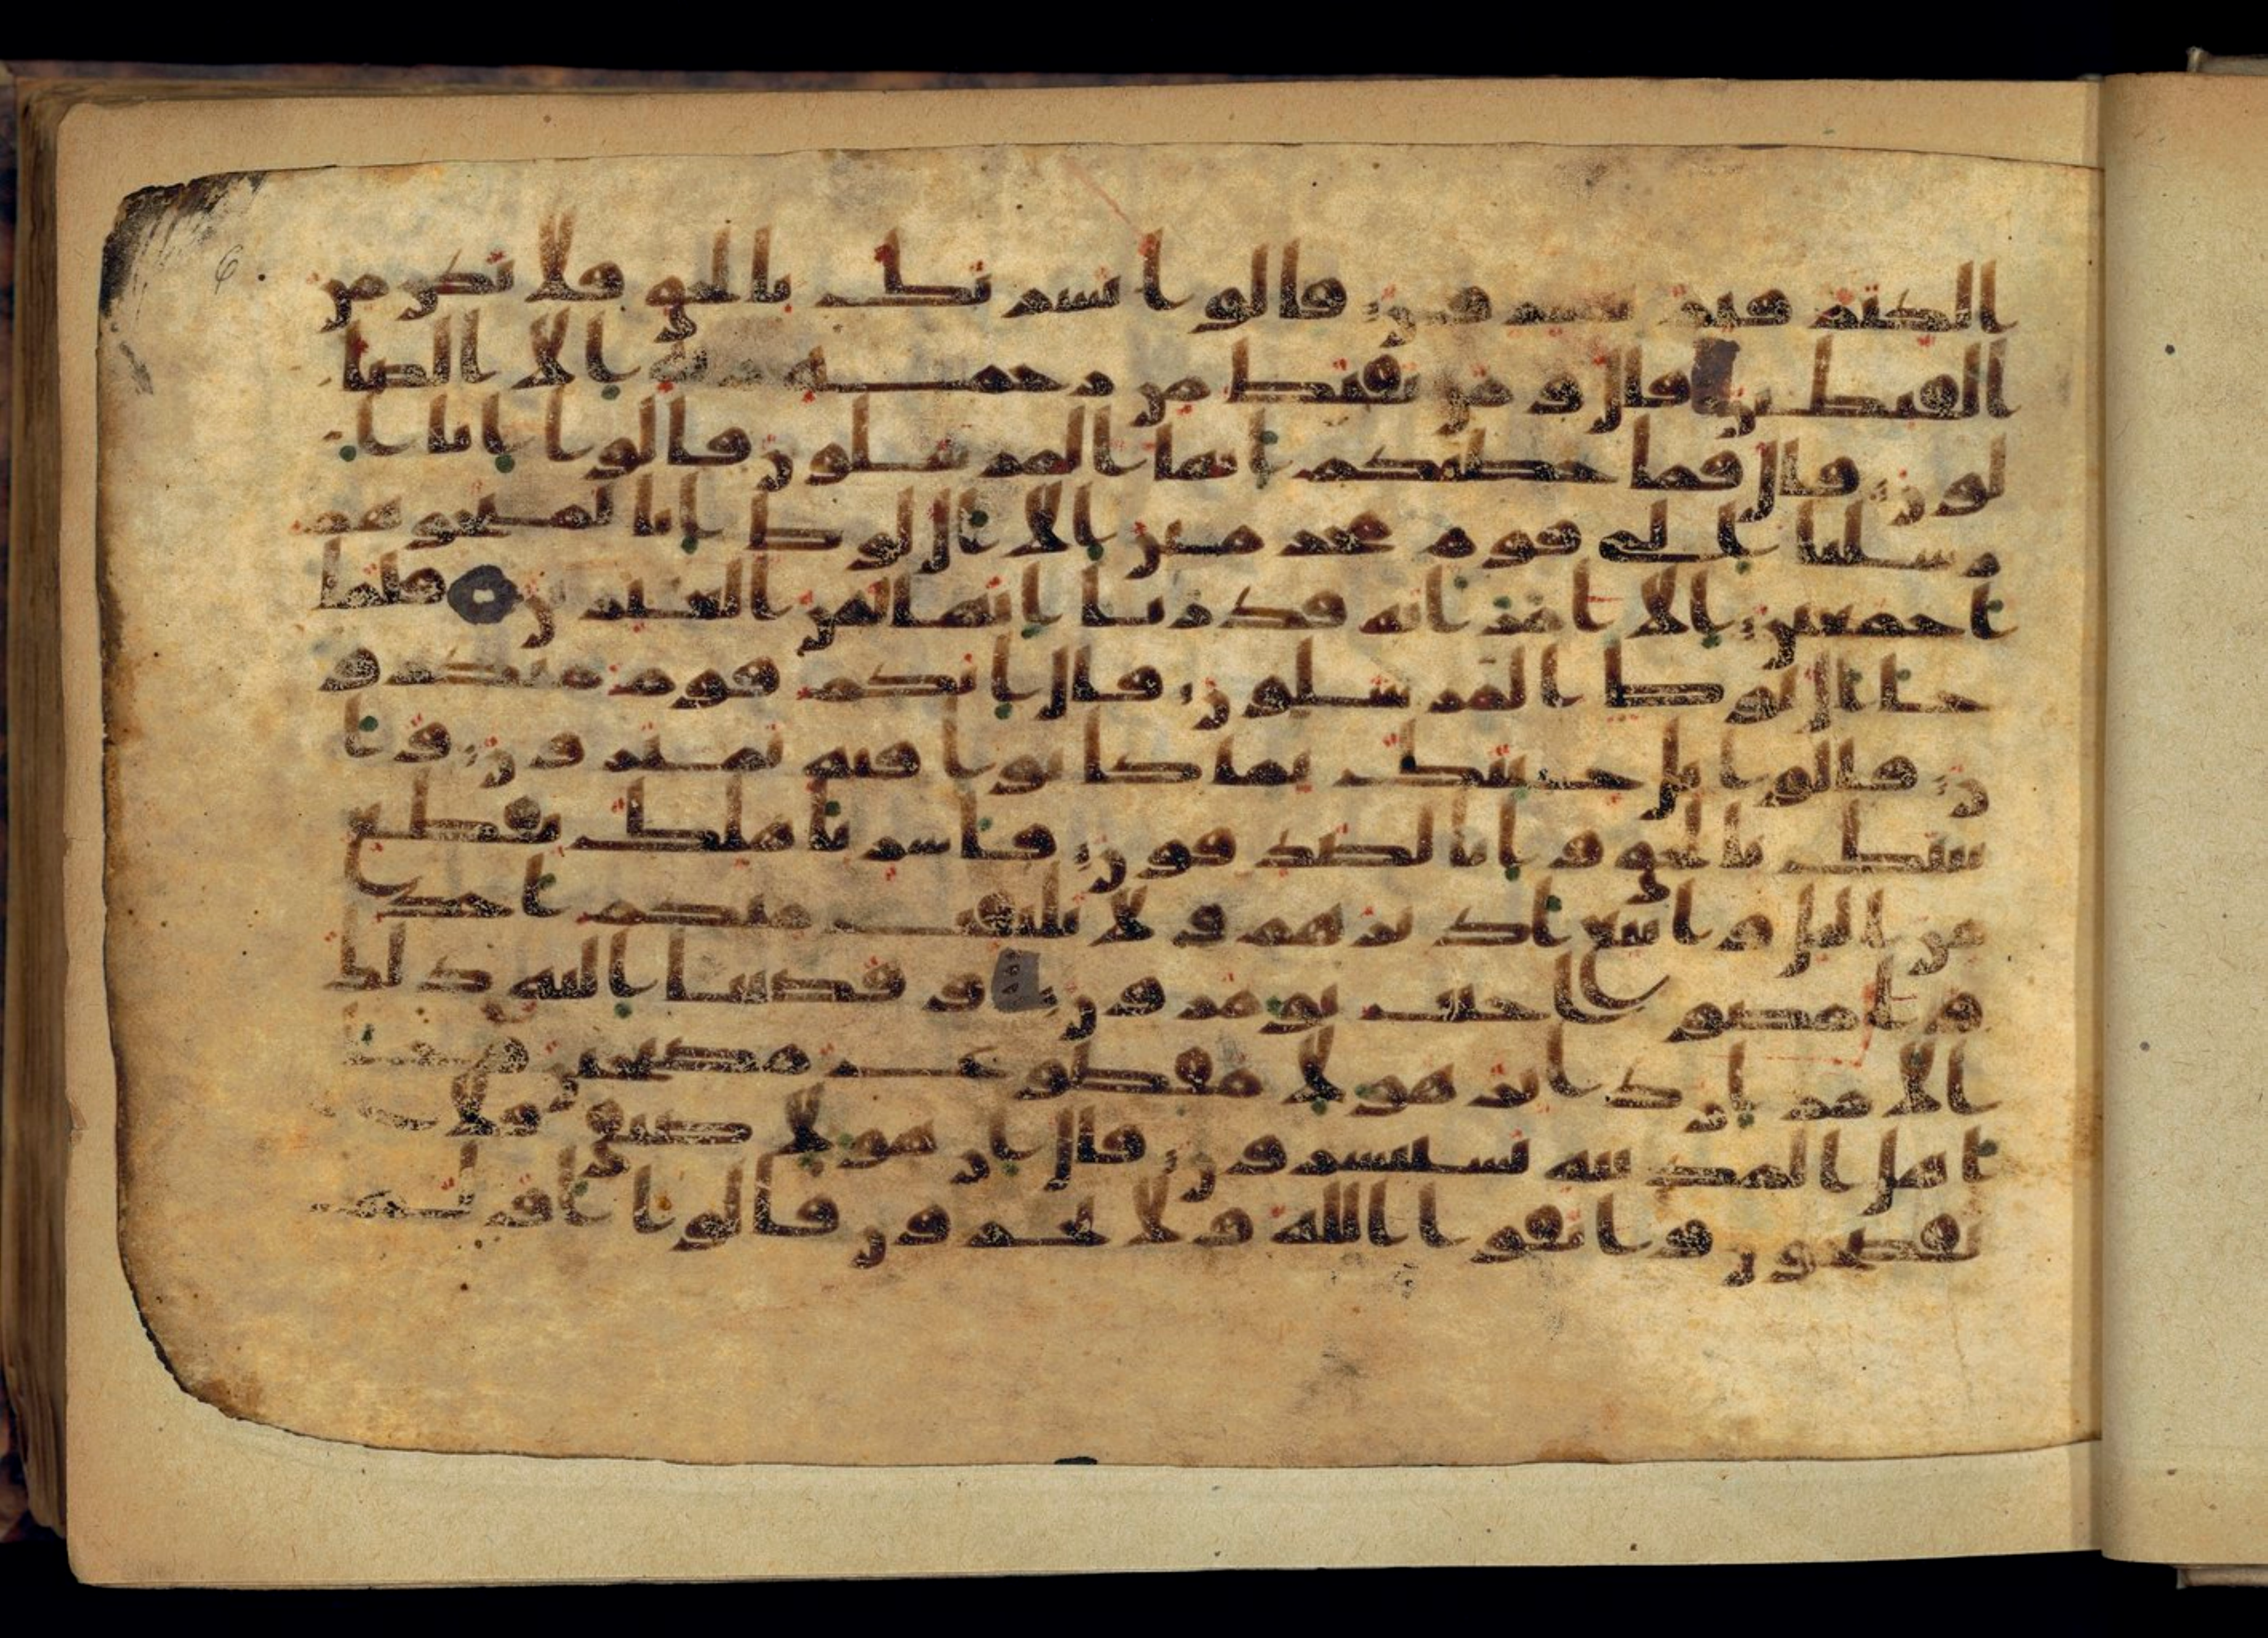 6
الكبر فبم تبشرون قالوا بشرنك بالحق فلا تكن من
القنطين قال ومن يقنط من رحمه ربه الا الضا
لون قال فما خطبكم ايها المرسلون قالوا انا ار
سلنا الى قوم مجرمين الا ال لوط انا لمنجوهم
اجمعين الا امرته قدرنا انها لمن الغبرين فلما
جا ال لوط المرسلون قال انكم قوم منكرو
ن قالوا بل جئنك بما كانوا فيه يمترون وا
تينك بالحق وانا لصدقون فاسر باهلك بقطع
من اليل واتبع ادبرهم ولا يلتفت منكم احد
وامضوا حيث تؤمرون وقضينا اليه ذلك
الامر ان دابر هولا مقطوع مصبحين وجا
اهل المدينه يستبشرون قال ان هولا ضيفي فلا
تفضحون واتقوا الله ولا تخزون قالوا اولم